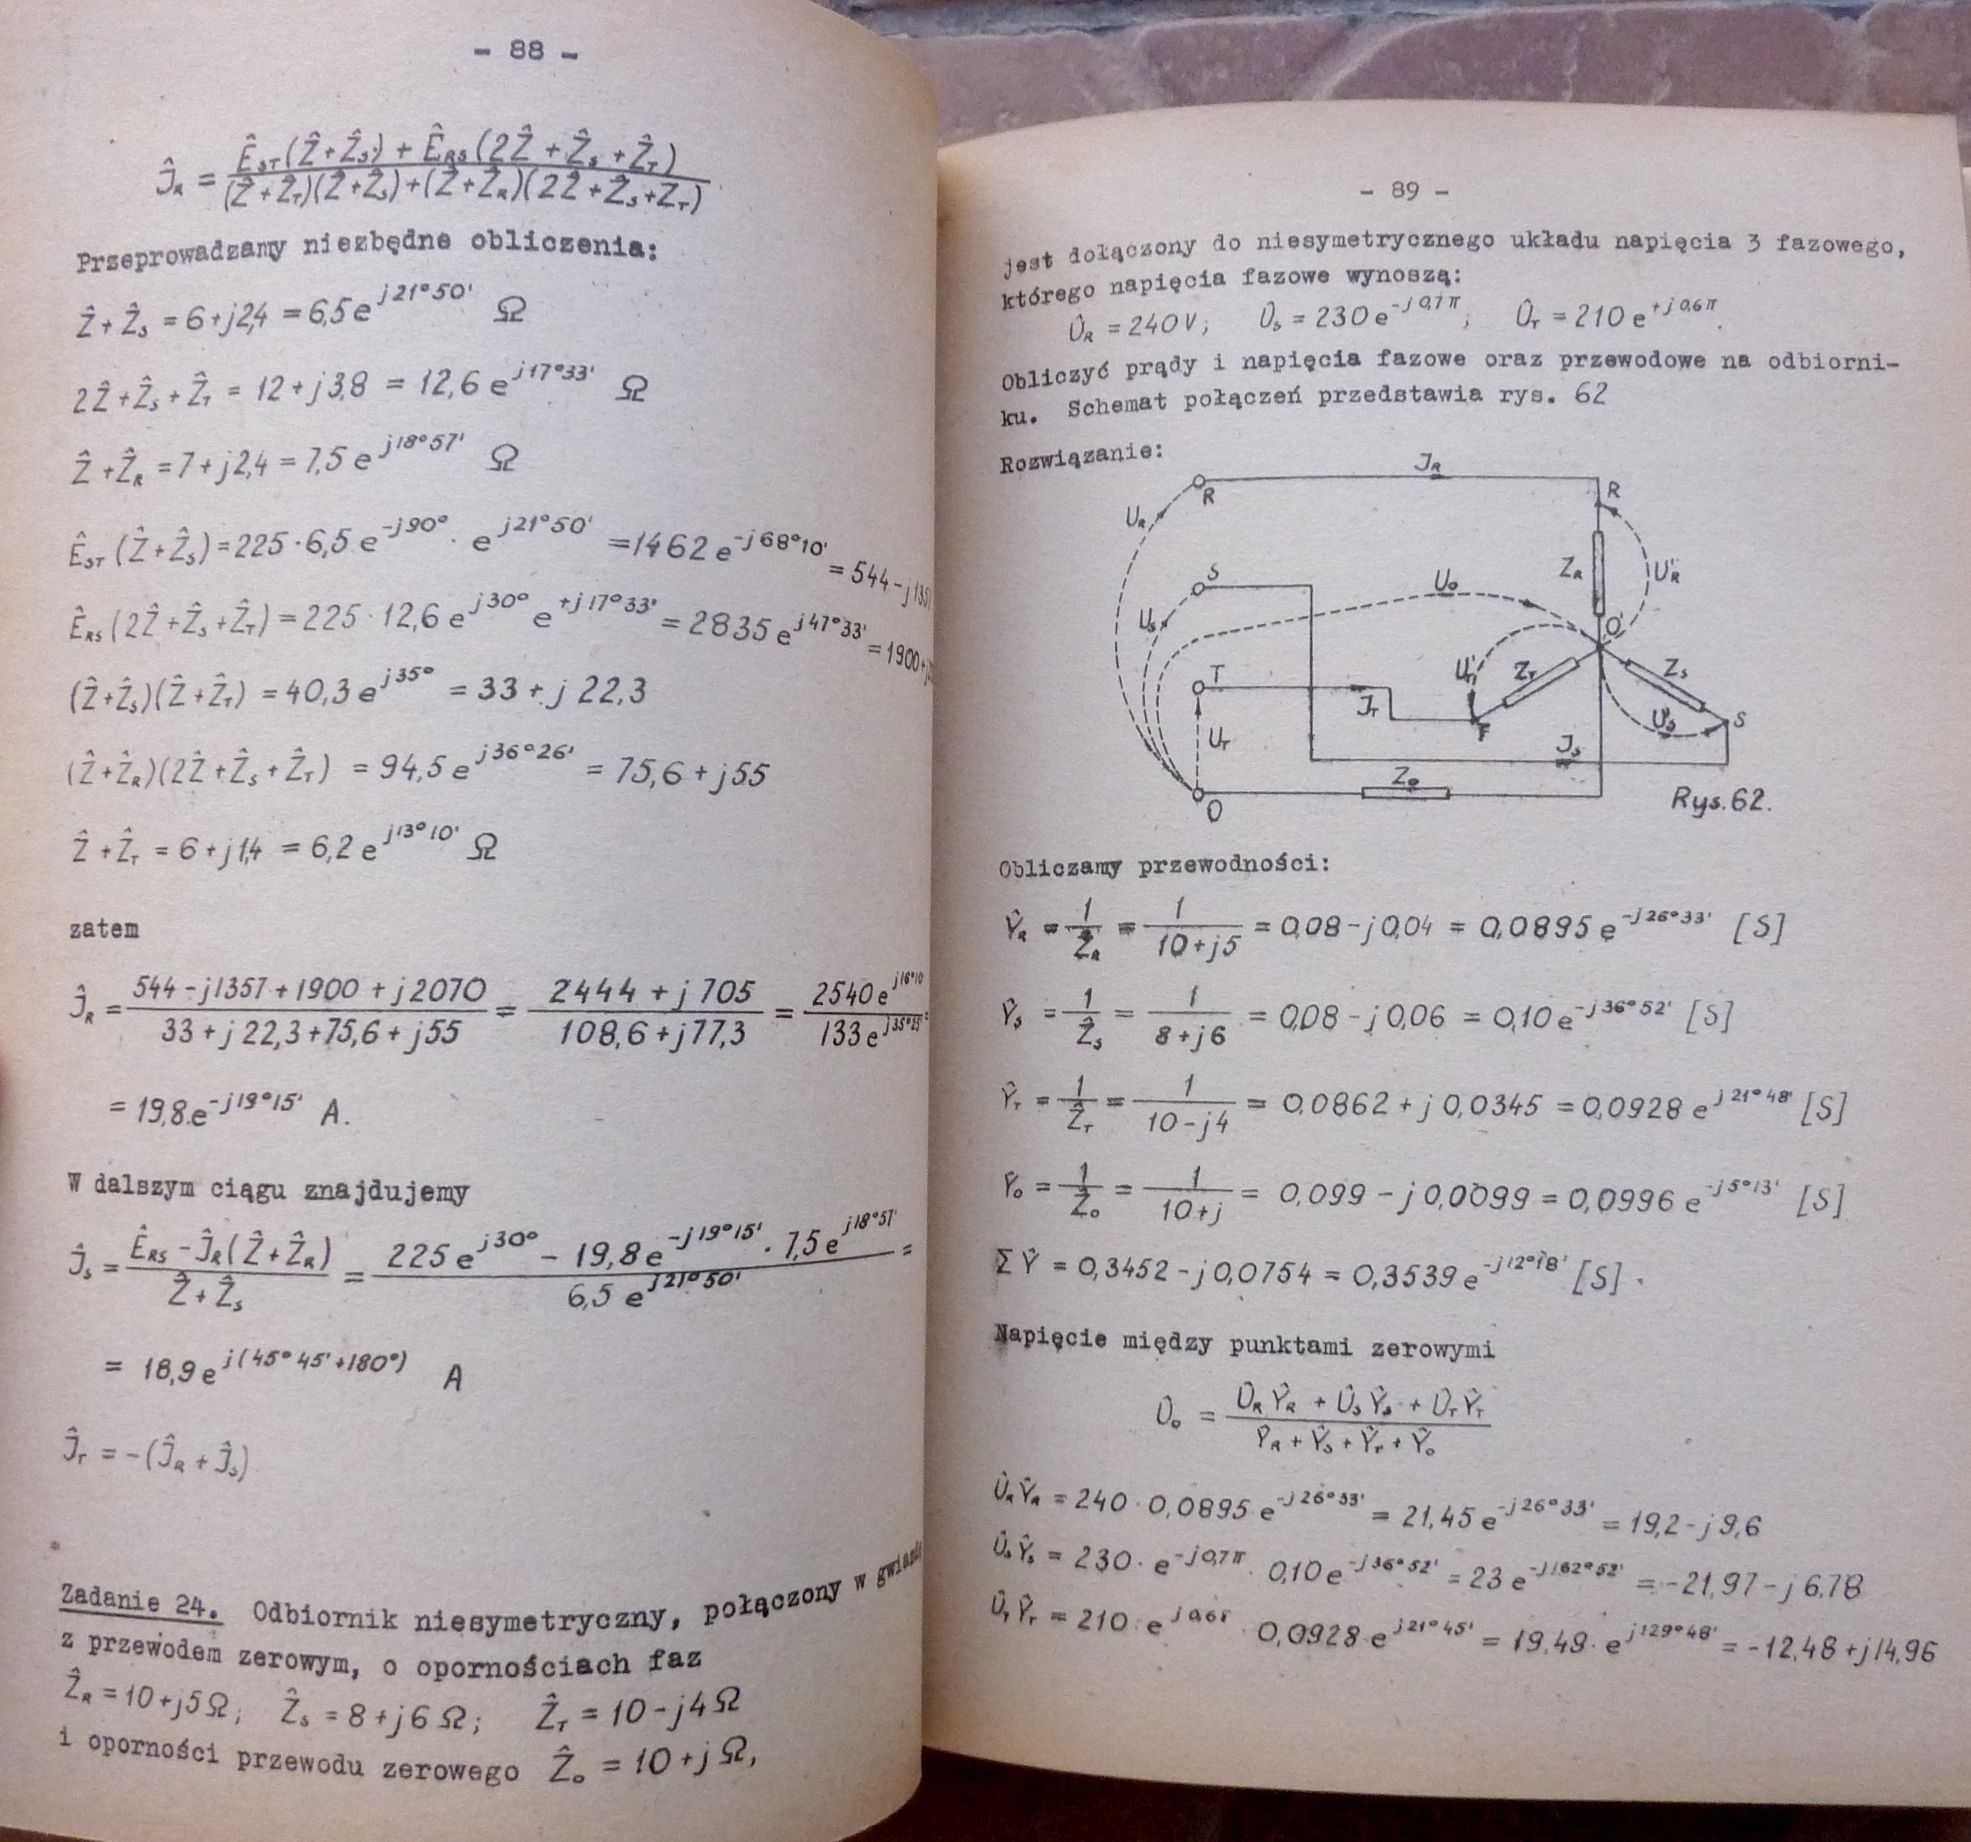 - 88 -
Ĵ_R = (Ê_ST(Ẑ+Ẑ_S) + Ê_RS(2Ẑ+Ẑ_S+Ẑ_T)) / ((Ẑ+Ẑ_T)(Ẑ+Ẑ_S)+(Ẑ+Ẑ_R)(2Ẑ+Ẑ_S+Z_T))
Przeprowadzamy niezbędne obliczenia:
Ẑ+Ẑ_S = 6+j2,4 = 6,5 e^{j21°50'} Ω
2Ẑ+Ẑ_S+Ẑ_T = 12+j3,8 = 12,6 e^{j17°33'} Ω
Ẑ+Ẑ_R = 7+j2,4 = 7,5 e^{j18°57'} Ω
Ê_ST(Ẑ+Ẑ_S) = 225·6,5 e^{-j90°} · e^{j21°50'} = 1462 e^{-j68°10'} = 544-j135
Ê_RS(2Ẑ+Ẑ_S+Ẑ_T) = 225·12,6 e^{j30°} e^{+j17°33'} = 2835 e^{j47°33'} = 1900+j
(Ẑ+Ẑ_S)(Ẑ+Ẑ_T) = 40,3 e^{j35°} = 33+j22,3
(Ẑ+Ẑ_R)(2Ẑ+Ẑ_S+Ẑ_T) = 94,5 e^{j36°26'} = 75,6+j55
Ẑ+Ẑ_T = 6+j1,4 = 6,2 e^{j13°10'} Ω
zatem
Ĵ_R = (544-j1357+1900+j2070) / (33+j22,3+75,6+j55) = (2444+j705) / (108,6+j77,3) = (2540 e^{j16°10}) / (133 e^{j35°25'}) =
= 19,8 e^{-j19°15'} A.
W dalszym ciągu znajdujemy
Ĵ_S = (Ê_RS - Ĵ_R(Ẑ+Ẑ_R)) / (Ẑ+Ẑ_S) = (225 e^{j30°} - 19,8 e^{-j19°15'} · 7,5 e^{j18°57'}) / (6,5 e^{j21°50'}) =
= 18,9 e^{j(45°45'+180°)} A
Ĵ_T = -(Ĵ_R+Ĵ_S)
Zadanie 24. Odbiornik niesymetryczny, połączony w
z przewodem zerowym, o opornościach faz
Ẑ_R = 10+j5Ω; Ẑ_S = 8+j6Ω; Ẑ_T = 10-j4Ω
i oporności przewodu zerowego Ẑ_o = 10+jΩ,
- 89 -
jest dołączony do niesymetrycznego układu napięcia 3 fazowego,
którego napięcia fazowe wynoszą:
Û_R = 240V; Û_S = 230 e^{-j0,7π}; Û_T = 210 e^{+j0,6π}.
Obliczyć prądy i napięcia fazowe oraz przewodowe na odbiorni-
ku. Schemat połączeń przedstawia rys. 62
Rozwiązanie:
J_R
R
R
U_R
Z_R
U'_R
S
U_o
U_S
O'
T
U'_T
Z_T
Z_S
J_T
U'_S
S
U_T
J_S
Z_o
O
Rys.62.
Obliczamy przewodności:
Ŷ_R = 1/Ẑ_R = 1/(10+j5) = 0,08-j0,04 = 0,0895 e^{-j26°33'} [S]
Ŷ_S = 1/Ẑ_S = 1/(8+j6) = 0,08-j0,06 = 0,10 e^{-j36°52'} [S]
Ŷ_T = 1/Ẑ_T = 1/(10-j4) = 0,0862+j0,0345 = 0,0928 e^{j21°48'} [S]
Ŷ_o = 1/Ẑ_o = 1/(10+j) = 0,099-j0,0099 = 0,0996 e^{-j5°13'} [S]
ΣŶ = 0,3452-j0,0754 = 0,3539 e^{-j12°18'} [S].
Napięcie między punktami zerowymi
Û_o = (Û_R Ŷ_R + Û_S Ŷ_S + Û_T Ŷ_T) / (Ŷ_R+Ŷ_S+Ŷ_T+Ŷ_o)
Û_R Ŷ_R = 240·0,0895 e^{-j26°33'} = 21,45 e^{-j26°33'} = 19,2-j9,6
Û_S Ŷ_S = 230· e^{-j0,7π} · 0,10 e^{-j36°52'} = 23 e^{-j162°52'} = -21,97-j6,78
Û_T Ŷ_T = 210· e^{j0,6π} · 0,0928 e^{j21°45'} = 19,49· e^{j129°48'} = -12,48+j14,96